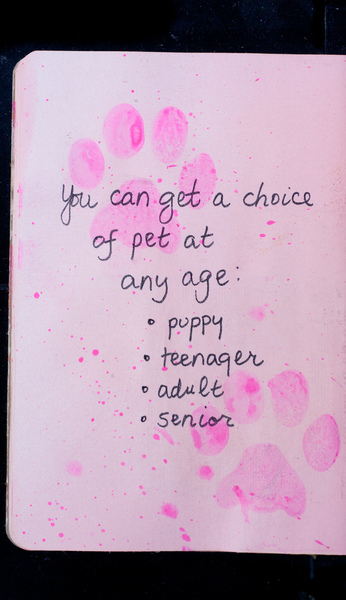 You can get a choice
of pet at
any age:
• puppy
• teenager
• adult
• senior